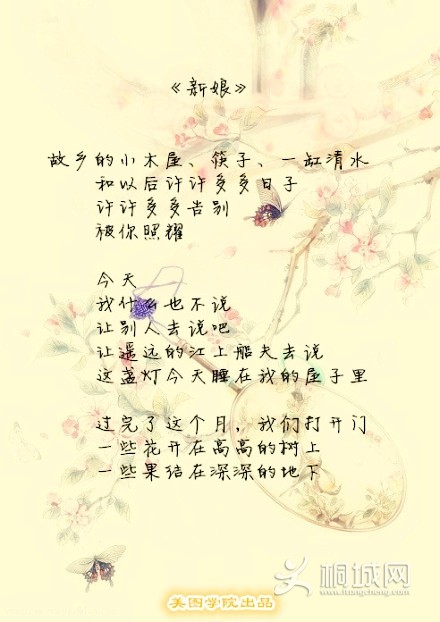 《新娘》
故乡的小木屋、筷子、一缸清水
和以后许许多多日子
许许多多告别
被你照耀
今天
我什么也不说
让别人去说吧
让遥远的江上船夫去说
这盏灯今天睡在我的屋子里
过完了这个月，我们打开门
一些花开在高高的树上
一些果结在深深的地下
桐城网
www.itongcheng.com
美图学院出品